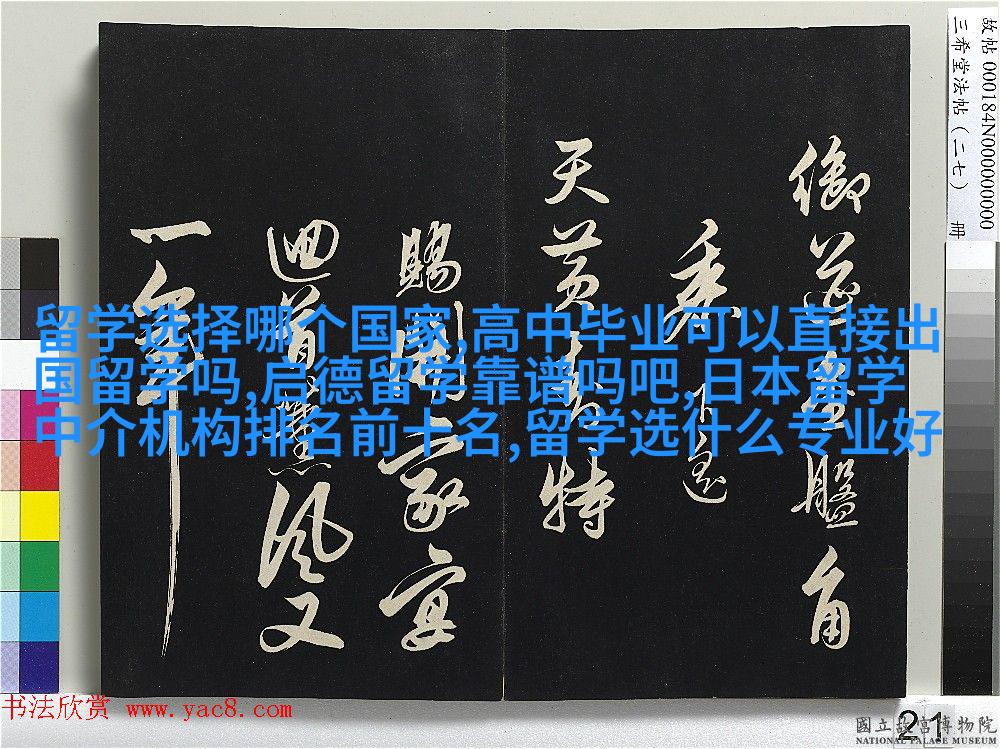 留学选择哪个国家,高中毕业可以直接出
国留学吗,启德留学靠谱吗吧,日本留学
中介机构排名前十名,留学选什么专业好
天黄
特
盤角
賜
家宴
迴首
風又
一
故帖 000184N000000000
三希堂法帖(二七) 冊
书法欣赏 www.yac8.com
21
國立故宮博物院
NATIONAL PALACE MUSEUM